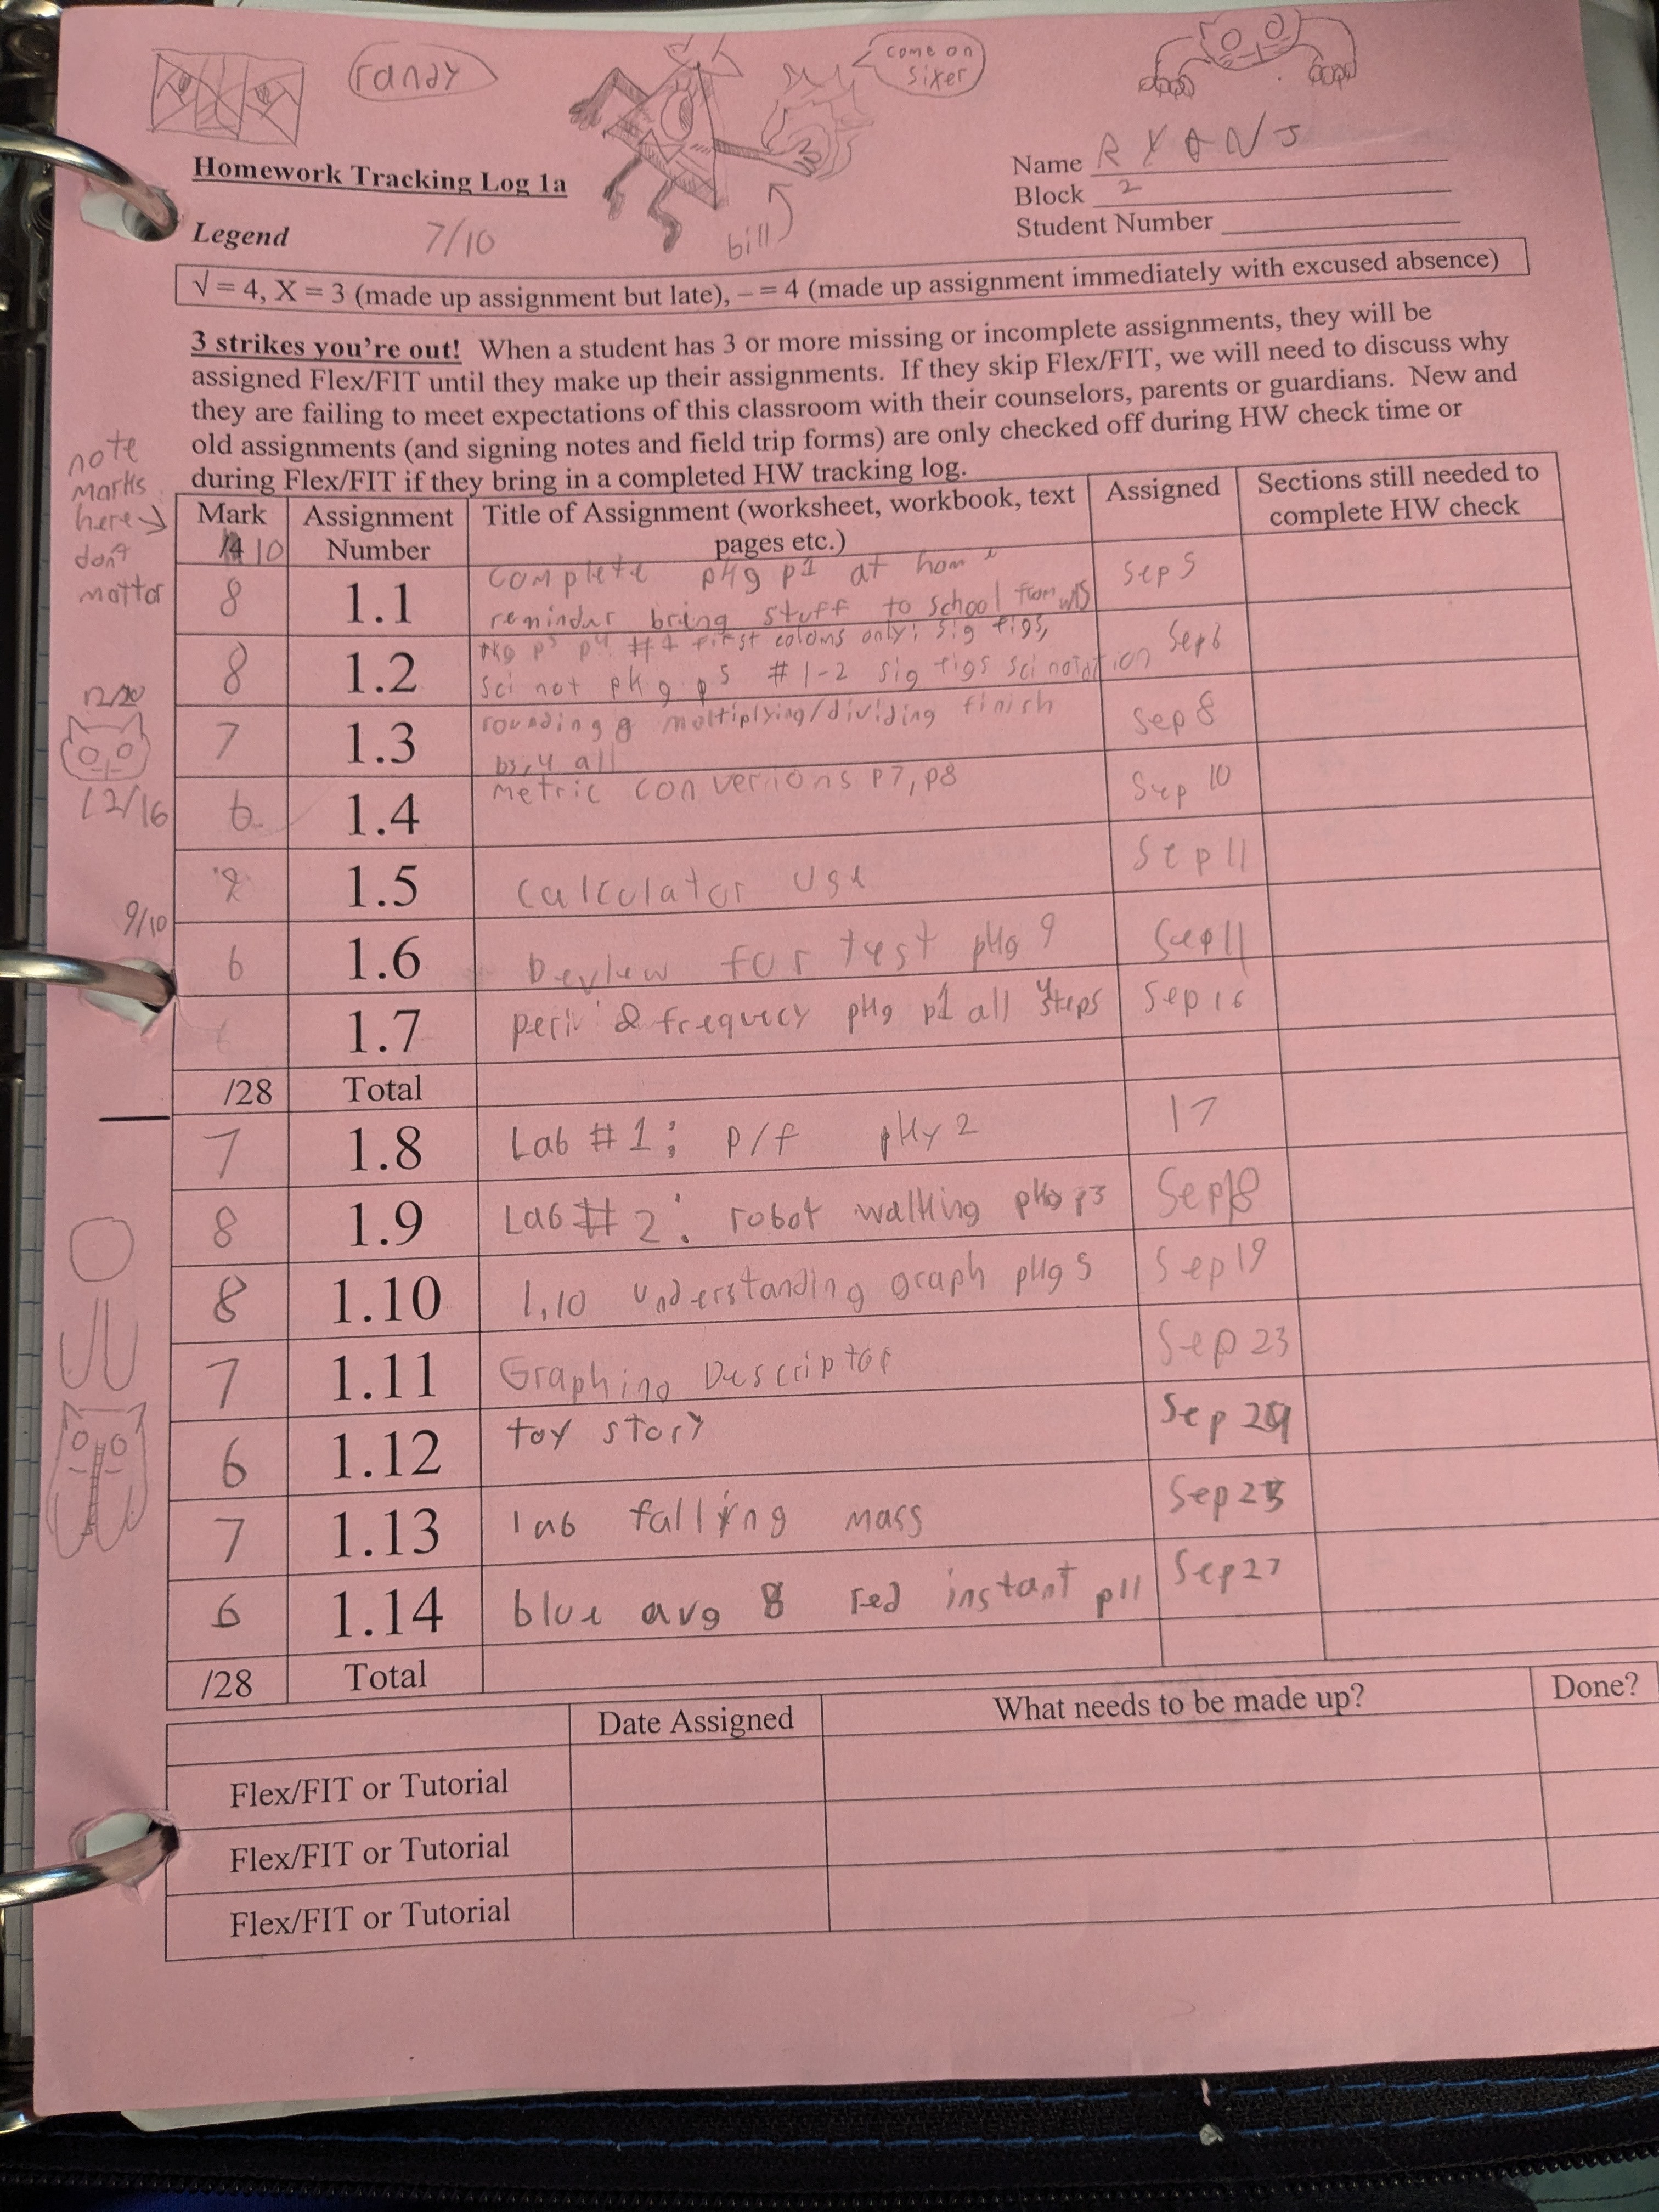 randy
come on
sixer
Homework Tracking Log 1a
Name RYANS
Block 2
Student Number
bill
Legend 7/10
√ = 4, X = 3 (made up assignment but late), – = 4 (made up assignment immediately with excused absence)
3 strikes you're out! When a student has 3 or more missing or incomplete assignments, they will be
assigned Flex/FIT until they make up their assignments. If they skip Flex/FIT, we will need to discuss why
they are failing to meet expectations of this classroom with their counselors, parents or guardians. New and
old assignments (and signing notes and field trip forms) are only checked off during HW check time or
during Flex/FIT if they bring in a completed HW tracking log.
note
marks
here
don't
mattar
Mark Assignment Title of Assignment (worksheet, workbook, text Assigned Sections still needed to
10 Number pages etc.) complete HW check
8 1.1 complete pkg p1 at home Sep 5
remindar bring stuff to school from
8 1.2 pkg p3 p4 #1 first coloms only; sig figs, Sep 6
sci not pkg p5 #1-2 sig figs sci notation
7 1.3 rounding & moltiplying/dividing finish Sep 8
all
12/16
6 1.4 metric converions p7, p8 Sep 10
1.5 calculator use Sep 11
9/10
6 1.6 Deview for test pkg 9 Sep 11
1.7 & frequecy pkg p1 all 4 steps Sep 16
/28 Total
7 1.8 Lab #1; p/f pkg 2 17
8 1.9 Lab #2: robot walking pkg p3 Sep 18
8 1.10 1.10 understanding graph pkg 5 Sep 19
7 1.11 Graphing Descriptor Sep 23
6 1.12 toy story Sep
7 1.13 lab falling mass Sep
6 1.14 blue avg & red instant p11 Sep 27
/28 Total
Date Assigned What needs to be made up? Done?
Flex/FIT or Tutorial
Flex/FIT or Tutorial
Flex/FIT or Tutorial